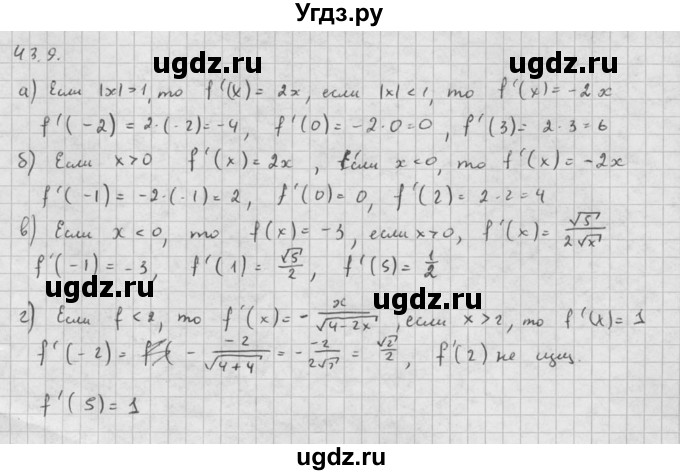 Угдз.ру
43.9.
а) Если |x|>1, то f'(x) = 2x, если |x|<1, то f'(x) = -2x
f'(-2) = 2·(-2) = -4, f'(0) = -2·0 = 0, f'(3) = 2·3 = 6
б) Если x>0 f'(x) = 2x, Если x<0, то f'(x) = -2x
f'(-1) = -2·(-1) = 2, f'(0) = 0, f'(2) = 2·2 = 4
в) Если x<0, то f(x) = -3, если x>0, f'(x) = √5/(2√x)
f'(-1) = -3, f'(1) = √5/2, f'(5) = 1/2
г) Если f<2, то f'(x) = -x/√(4-2x), если x>2, то f'(x) = 1
f'(-2) = - -2/√(4+4) = - -2/(2√2) = √2/2, f'(2) не сущ.
f'(5) = 1
ugdz.ru ugdz.ru
ugdz.ru ugdz.ru ugdz.ru
ugdz.ru ugdz.ru
ugdz.ru ugdz.ru ugdz.ru
ugdz.ru ugdz.ru